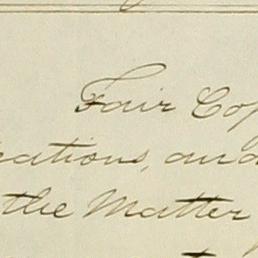 Fair Cop
cations, and
the Matter